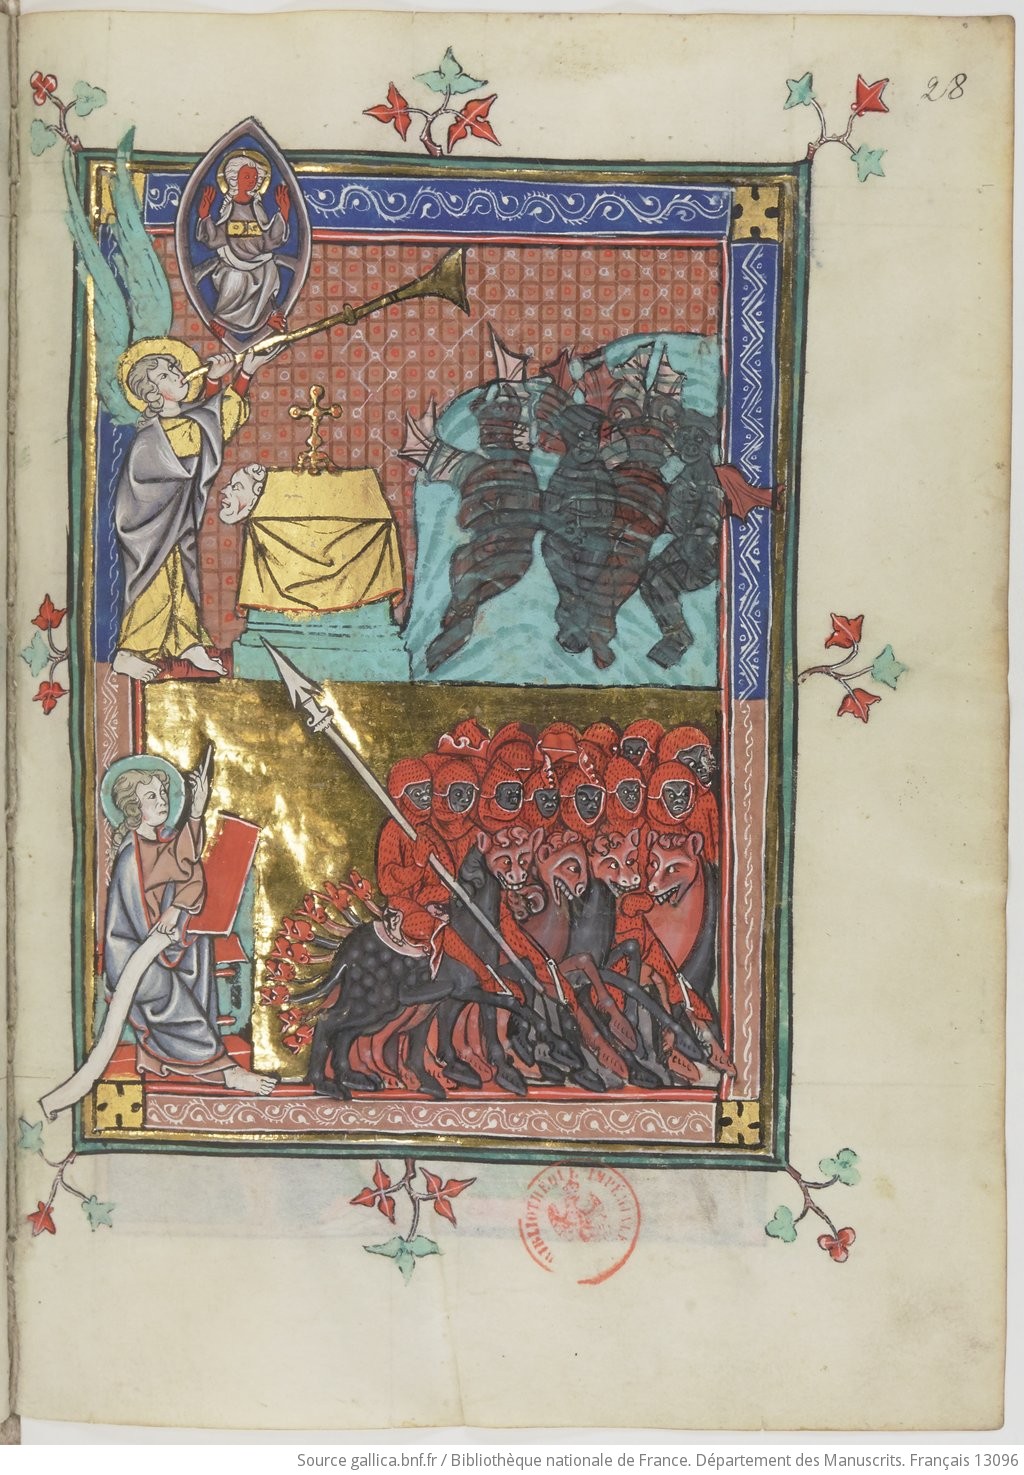 28
BIBLIOTHÈQUE IMPÉRIALE
Source gallica.bnf.fr / Bibliothèque nationale de France. Département des Manuscrits. Français 13096